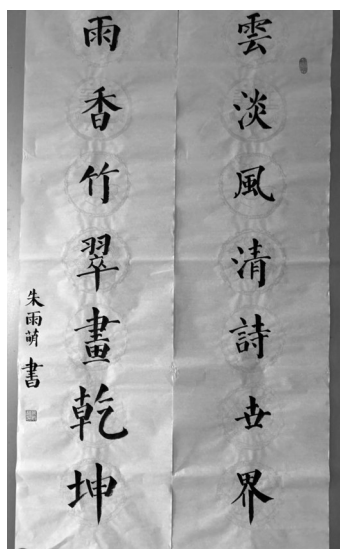 雲淡風清詩世界
雨香竹翠畫乾坤
朱雨萌書